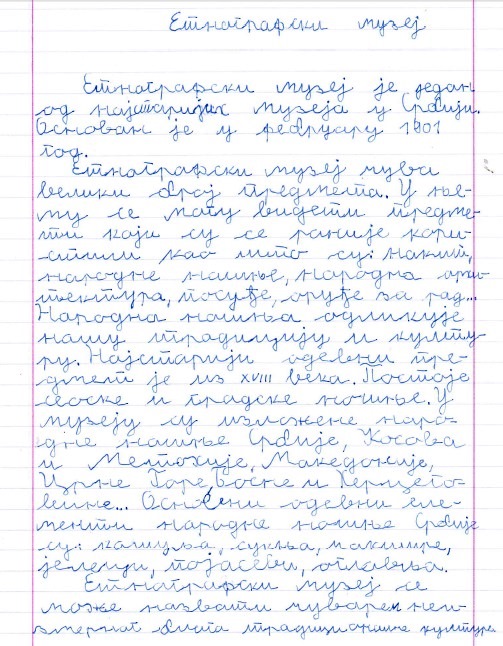 Етнографски музеј
Етнографски музеј је један
од најстаријих музеја у Србији.
Основан је у фебруару 1901
год.
Етнографски музеј чува
велики број предмета. У ње-
му се могу видети предме-
ти који су се раније кори-
стили као што су: накит,
народне ношње, народна архи-
тектура, посуђе, оруђе за рад...
Народна ношња одликује
нашу традицију и култу-
ру. Најстарији одевени пре-
дмет је из XVIII века. Постоје
сеоске и градске ношње. У
музеју су изложене наро-
дне ношње Србије, Косова
и Метохије, Македоније,
Црне Горе, Босне и Херцего-
вине... Основни одевни еле-
менти народне ношње Србије
су: кошуља, сукња, чакшире,
јелеци, појасеви, оглавља.
Етнографски музеј се
може назвати чуварем неи-
змерног блага традиционалне културе